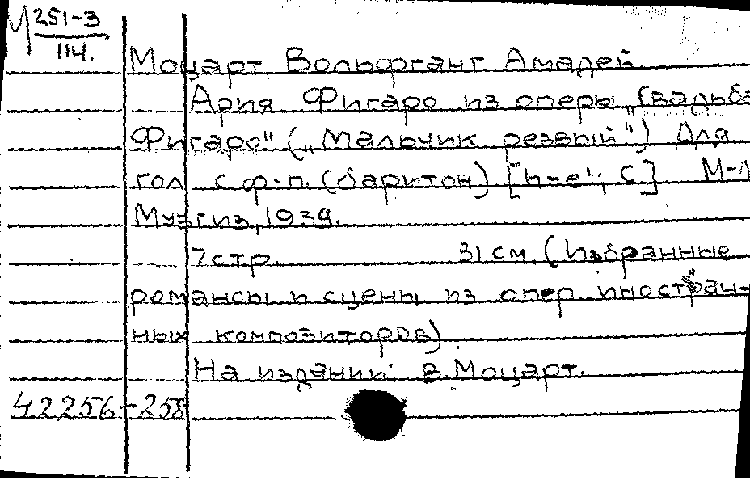 М 251-3
114.
Моцарт Вольфганг Амадей
Ария Фигаро из оперы „Свадьба
Фигаро" („Мальчик резвый") Для
гол с ф-п. (баритон) [h-e¹; C] М-Л
Музгиз, 1939.
7 стр. 31 см. (Избранные
романсы и сцены из опер иностран-
ных композиторов)
На издании: В. Моцарт.
42256-258